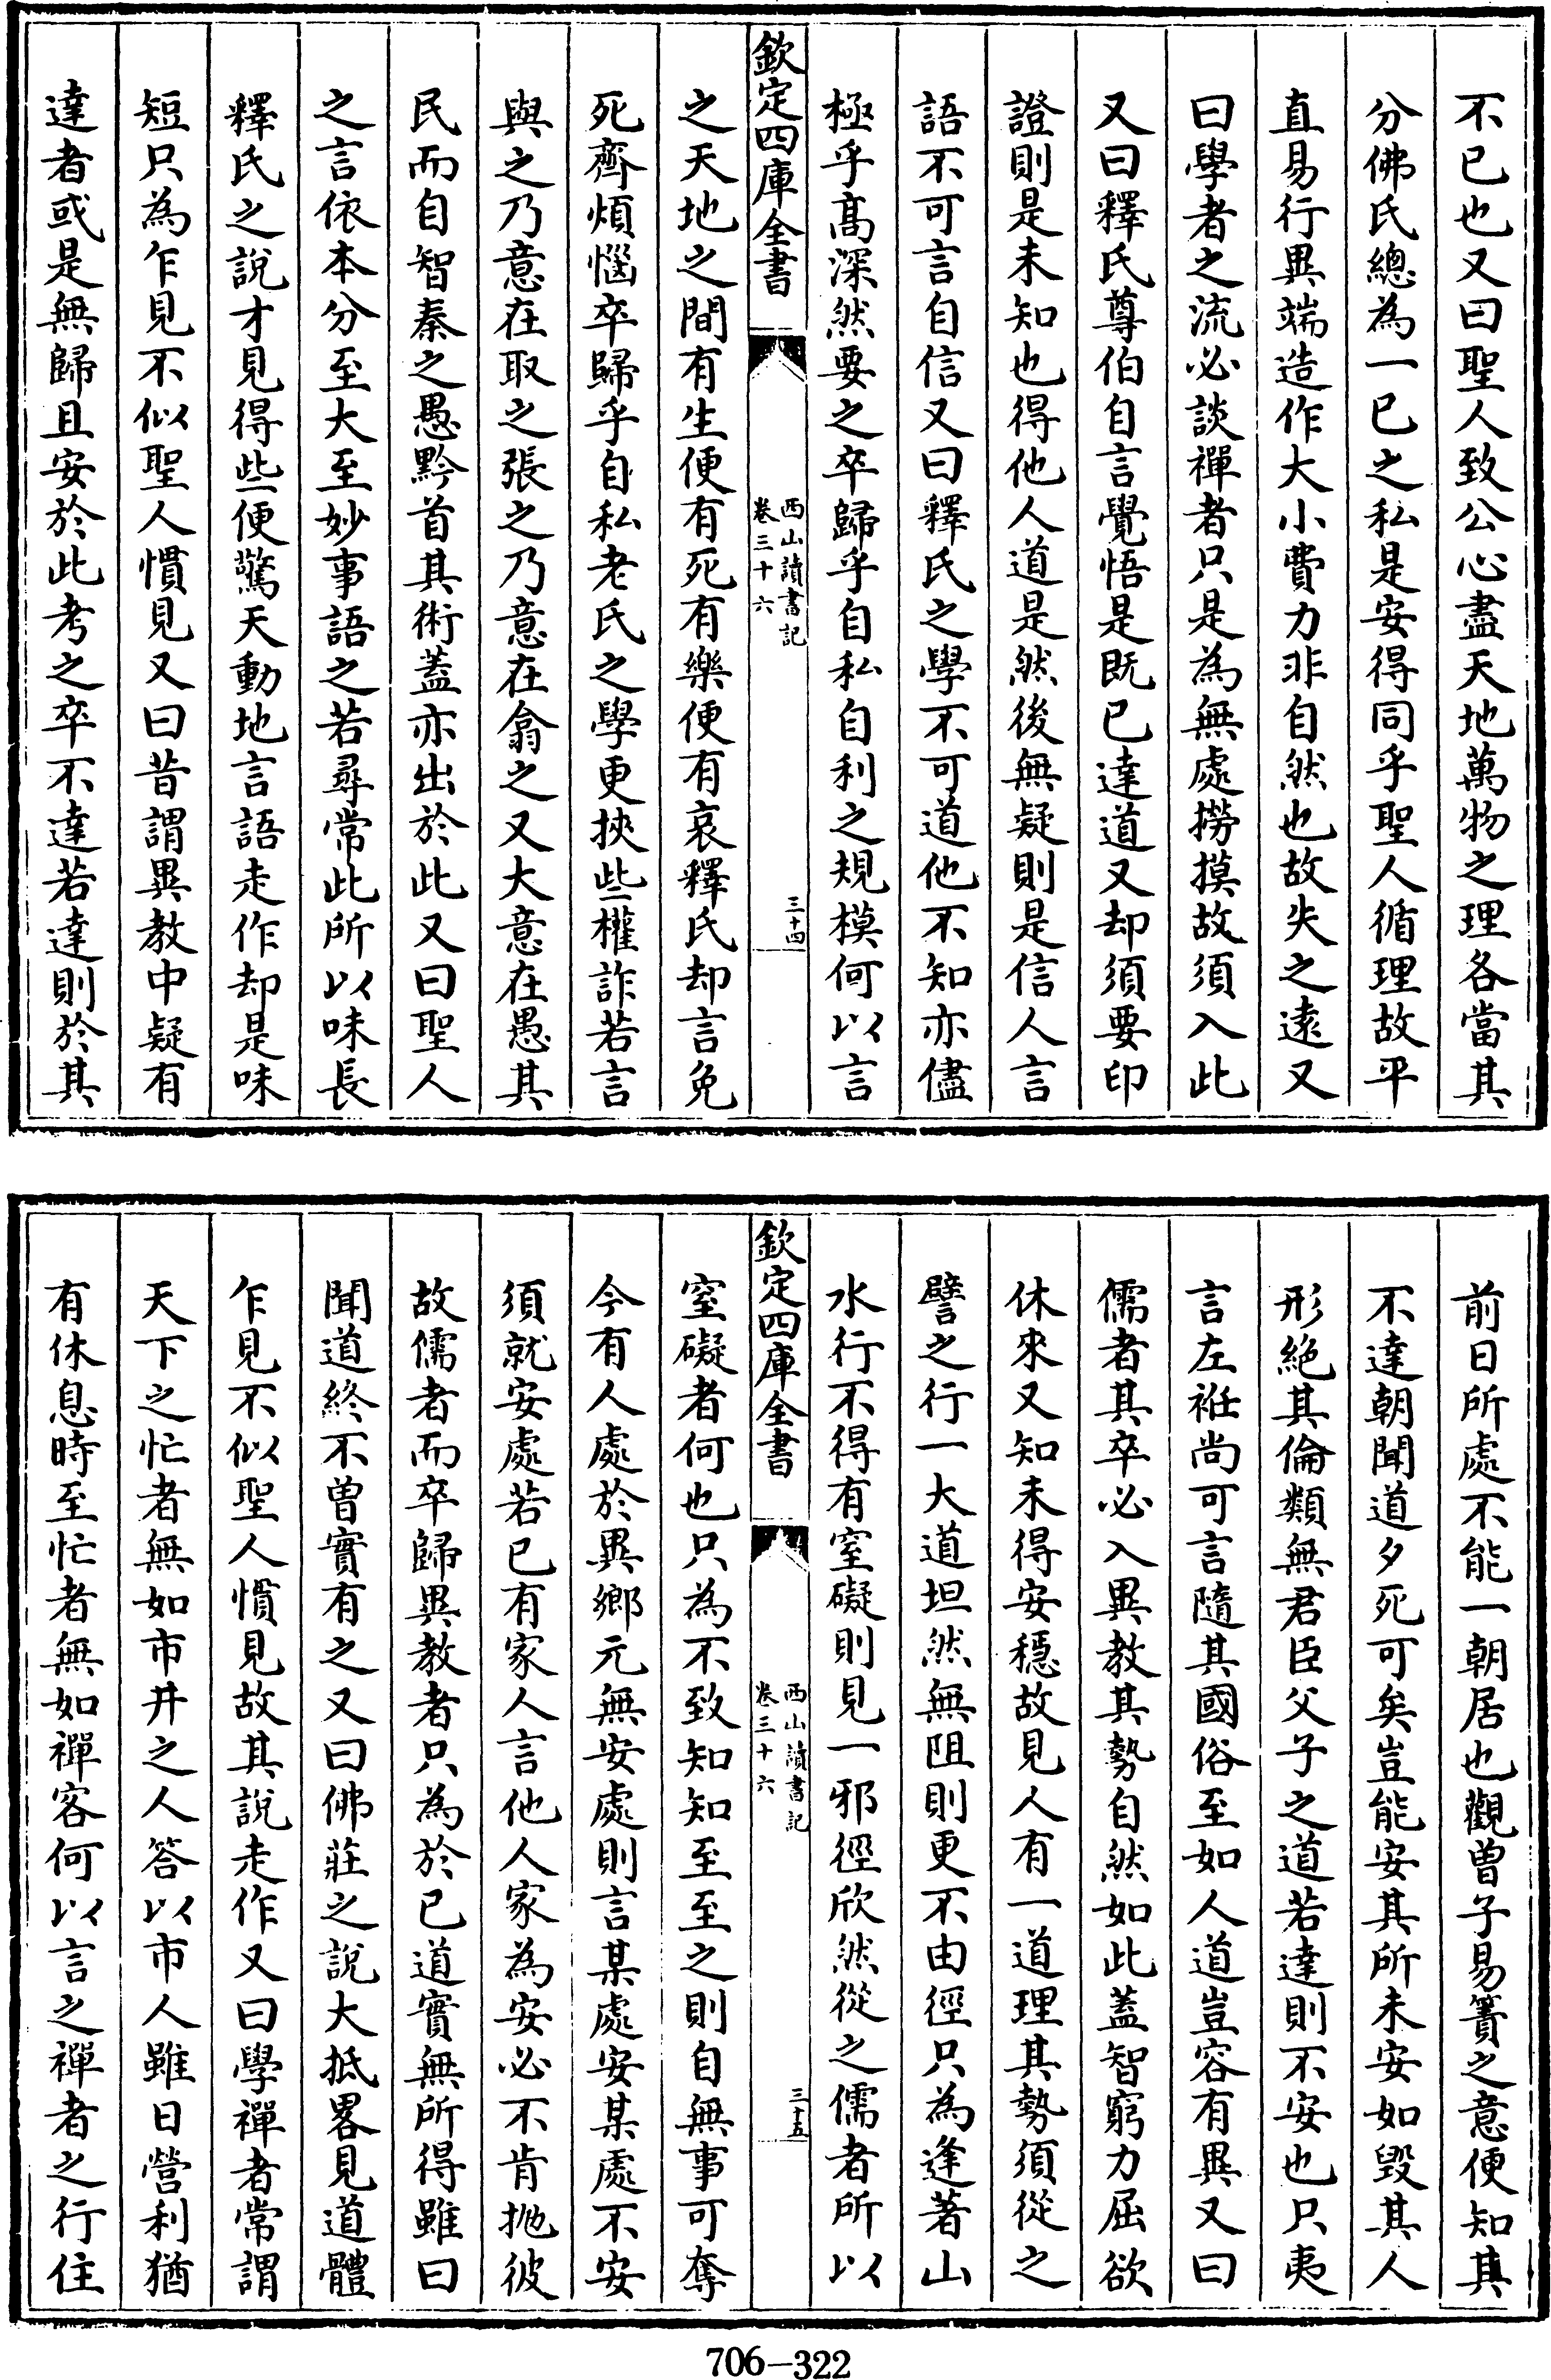 不已也又曰聖人致公心盡天地萬物之理各當其
分佛氏總為一已之私是安得同乎聖人循理故平
直易行異端造作大小費力非自然也故失之遠又
曰學者之流必談禪者只是為無處撈摸故須入此
又曰釋氏尊伯自言覺悟是既已達道又却須要印
證則是未知也得他人道是然後無疑則是信人言
語不可言自信又曰釋氏之學不可道他不知亦儘
極乎髙深然要之卒歸乎自私自利之規模何以言
欽定四庫全書
西山讀書記
卷三十六
三十四
之天地之間有生便有死有樂便有哀釋氏却言免
死齊煩惱卒歸乎自私老氏之學更挾些權詐若言
與之乃意在取之張之乃意在翕之又大意在愚其
民而自智秦之愚黔首其術蓋亦出於此又曰聖人
之言依本分至大至妙事語之若尋常此所以味長
釋氏之說才見得些便驚天動地言語走作却是味
短只為乍見不似聖人慣見又曰昔謂異教中疑有
達者或是無歸且安於此考之卒不達若達則於其
前日所處不能一朝居也觀曾子易簀之意便知其
不達朝聞道夕死可矣豈能安其所未安如毀其人
形絶其倫類無君臣父子之道若達則不安也只夷
言左袵尚可言隨其國俗至如人道豈容有異又曰
儒者其卒必入異教其勢自然如此蓋智窮力屈欲
休來又知未得安穩故見人有一道理其勢須從之
譬之行一大道坦然無阻則更不由徑只為逢著山
水行不得有窒礙則見一邪徑欣然從之儒者所以
欽定四庫全書
西山讀書記
卷三十六
三十五
窒礙者何也只為不致知知至至之則自無事可奪
今有人處於異鄉元無安處則言某處安某處不安
須就安處若已有家人言他人家為安必不肯抛彼
故儒者而卒歸異教者只為於已道實無所得雖曰
聞道終不曽實有之又曰佛莊之說大抵畧見道體
乍見不似聖人慣見故其說走作又曰學禪者常謂
天下之忙者無如市井之人答以市人雖日營利猶
有休息時至忙者無如禪客何以言之禪者之行住
706-322